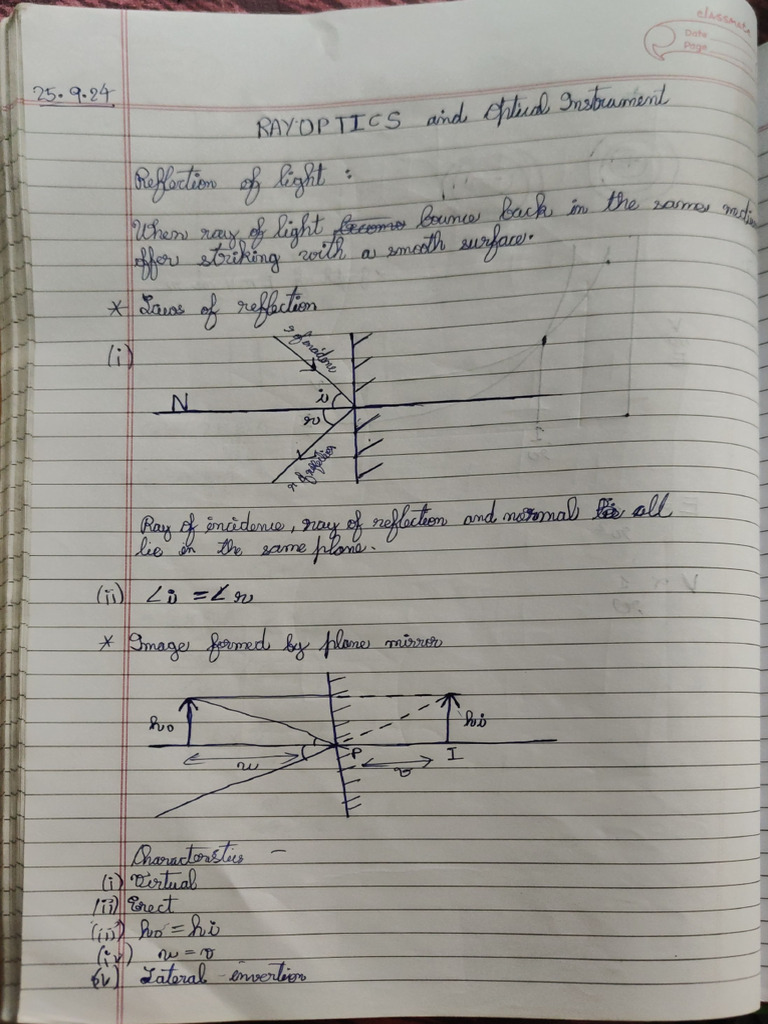 classmate
Date
Page
25.9.24
RAYOPTICS and Optical Instrument
Reflection of light :
When ray of light become bounce back in the same
offer striking with a smooth surface.
* Laws of reflection
(i)
r of incidence
N
i
r
r of reflection
Ray of incidence, ray of reflection and normal lie all
lie in the same plane.
(ii) ∠i = ∠r
* Image formed by plane mirror
ho
hi
P
I
u
v
Characterstics -
(i) Virtual
(ii) Erect
(iii) ho = hi
(iv) u = v
(v) Lateral invertion